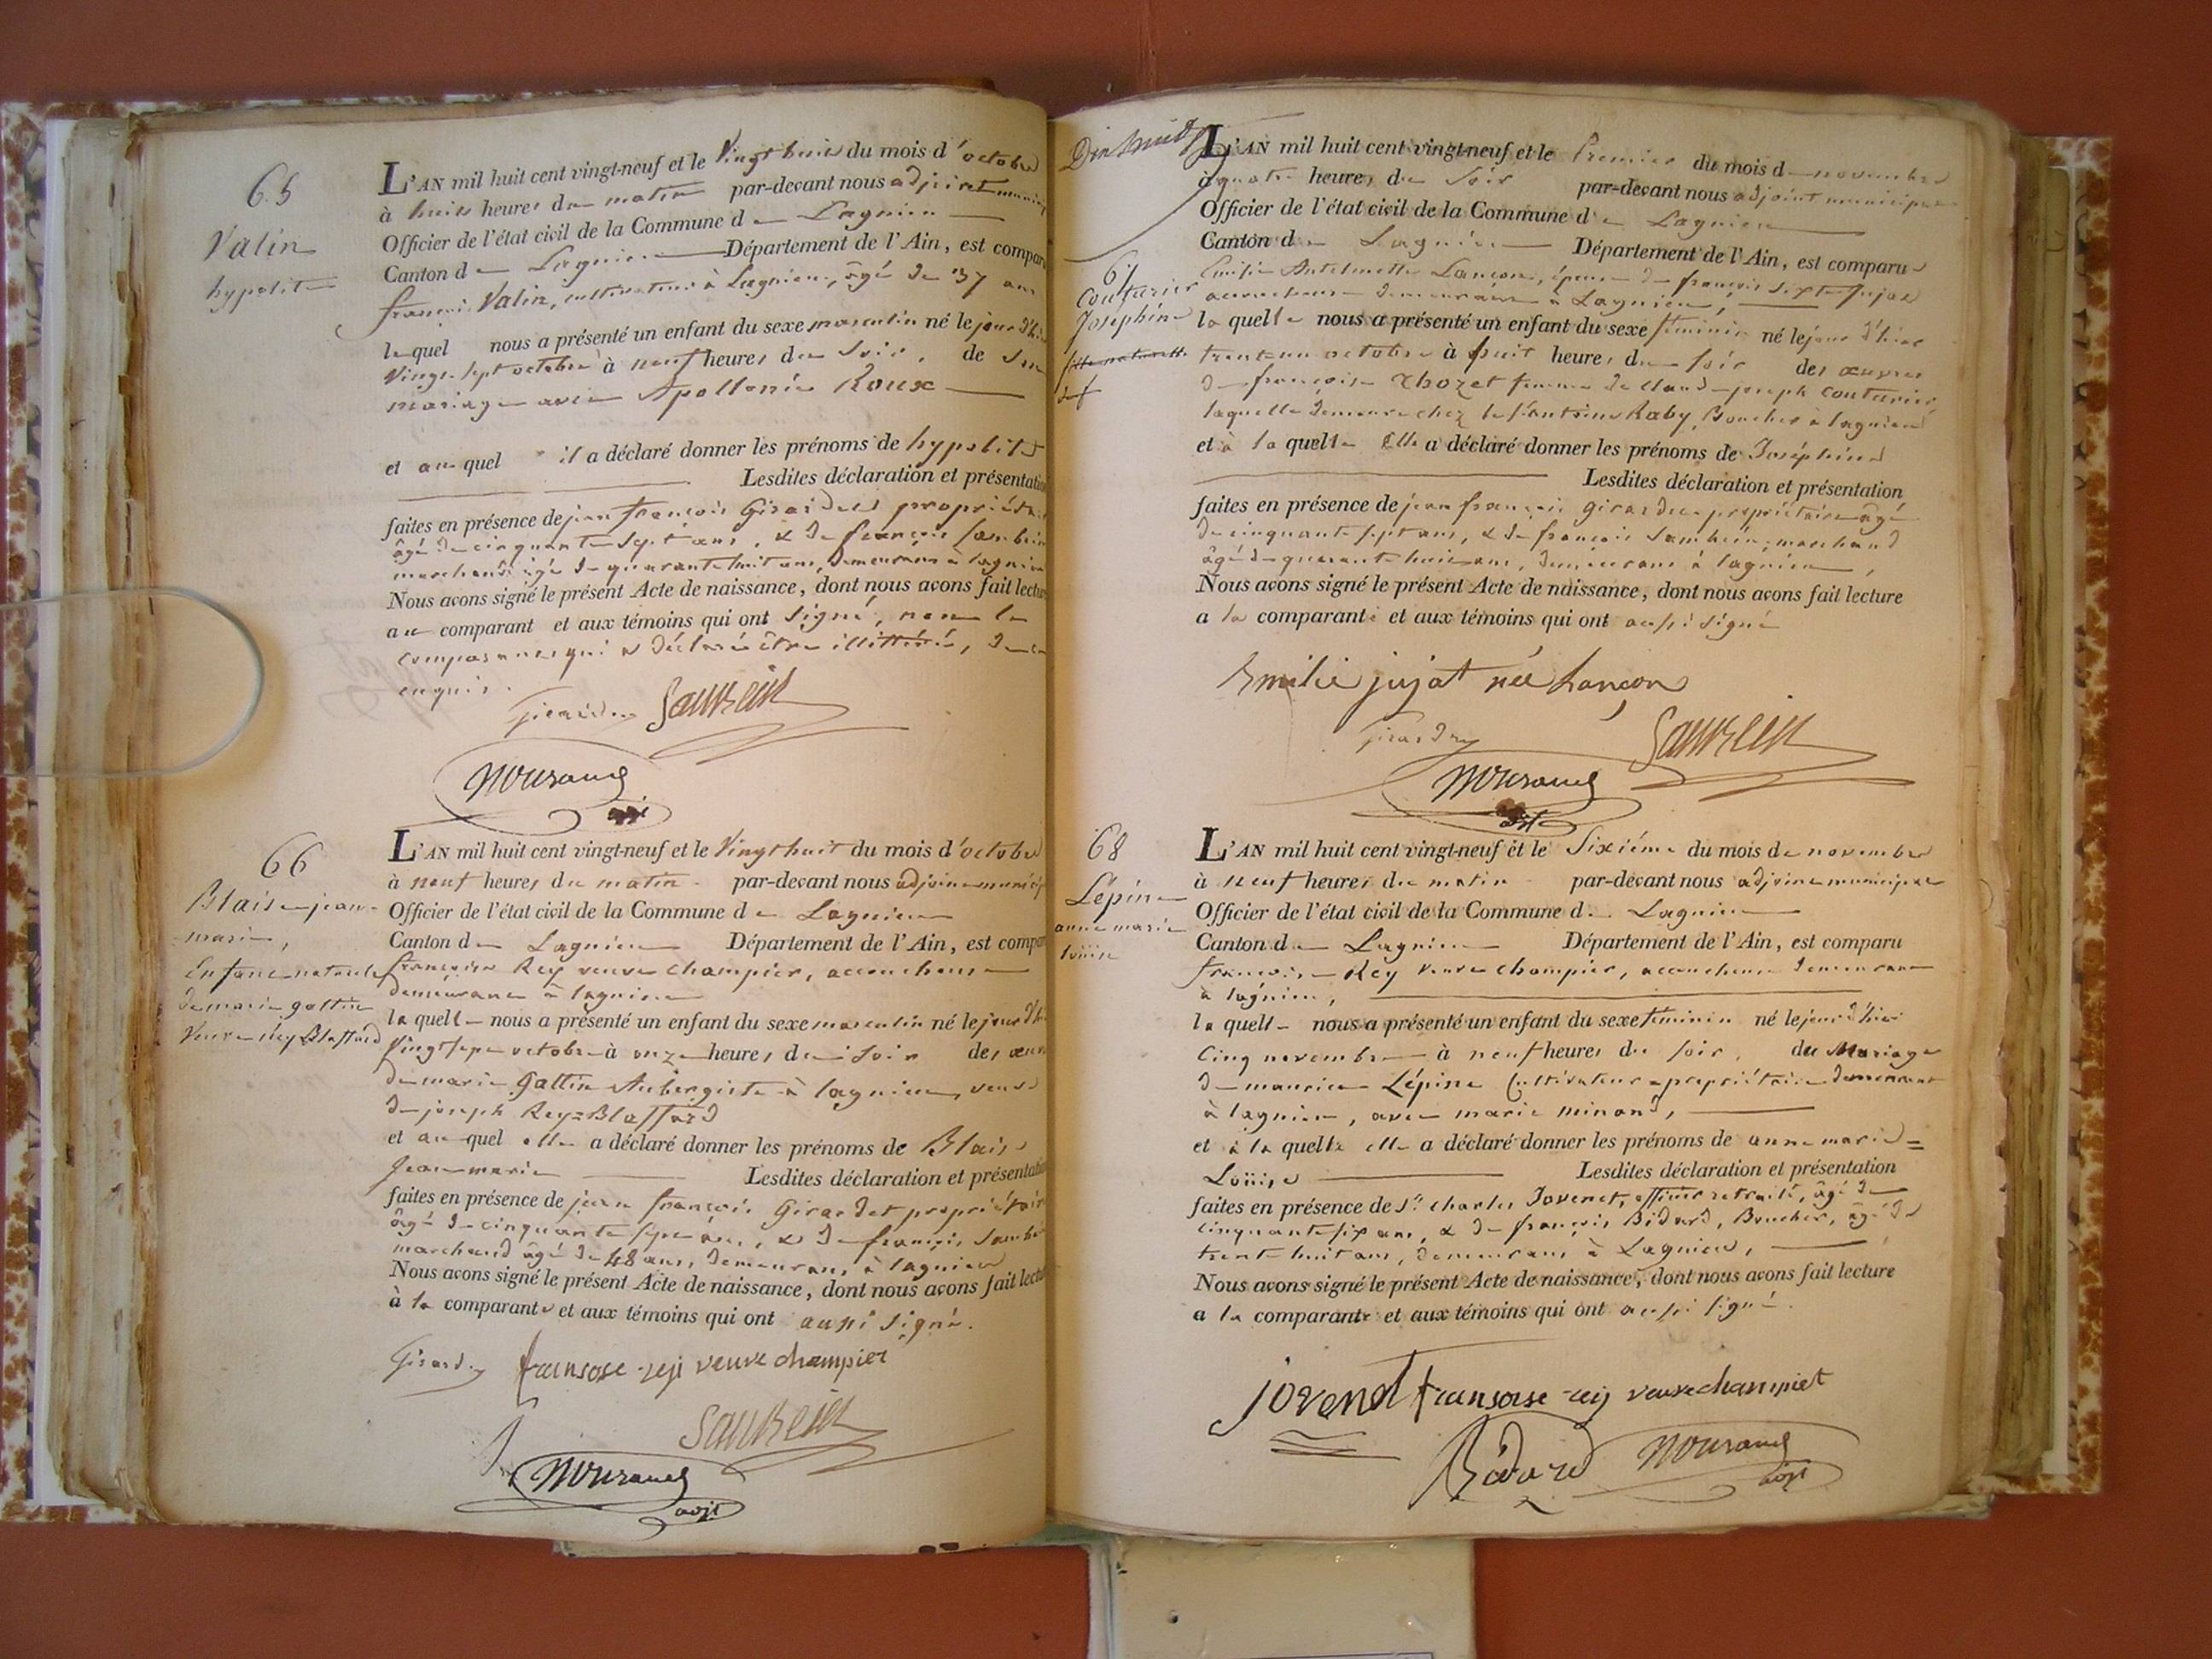 65
Valin
hypolite
L'AN mil huit cent vingt-neuf et le Vingt huit du mois d'octobre
à huit heures du matin par-devant nous adjoint munici
Officier de l'état civil de la Commune de Lagnieu
Canton de Lagnieu Département de l'Ain, est compar
françois Valin, cultivateur à Lagnieu, âgé de 37 ans
lequel nous a présenté un enfant du sexe masculin né le jour d'hi
Vingt sept octobre à neuf heures du Soir, de son
mariage avec Apollonie Roux
et au quel il a déclaré donner les prénoms de hypolite
Lesdites déclaration et présentatio
faites en présence de jean françois Girardet propriétai
âgé de cinquante sept ans, & de françois
marchand âgé de quarante huit ans, demeurans à lagnieu
Nous avons signé le présent Acte de naissance, dont nous avons fait lectu
au comparant et aux témoins qui ont signé, non le
comparant qui a déclaré être illittéré, de ce
enquis.
66
Blaise jean-
marie,
Enfant naturel
de marie gottin
Veuve Rey Blaffard
L'AN mil huit cent vingt-neuf et le Vingt huit du mois d'octobre
à neuf heures du matin par-devant nous adjoint municip
Officier de l'état civil de la Commune de Lagnieu
Canton de Lagnieu Département de l'Ain, est compar
françoise Rey veuve champier, accoucheuse
demeurant à lagnieu
la quelle nous a présenté un enfant du sexe masculin né le jour d'hi
Vingt sept octobre à onze heures du Soir des œuv
de marie Gottin Aubergiste à lagnieu, veuve
de joseph Rey=Blaffard
et au quel elle a déclaré donner les prénoms de Blaise
Jean marie Lesdites déclaration et présentatio
faites en présence de jean françois Girardet propriétair
âgé de cinquante sept ans, & de françois
marchand âgé de 48 ans, demeurans à lagnieu
Nous avons signé le présent Acte de naissance, dont nous avons fait lectu
à la comparante et aux témoins qui ont aussi signé.
fransose reji veuve champier
adjt
67
Couturier
Joséphine
fille naturelle
de
L'AN mil huit cent vingt-neuf et le Premier du mois de novembre
à quatre heures du Soir par-devant nous adjoint municipal
Officier de l'état civil de la Commune de Lagnieu
Canton de Lagnieu Département de l'Ain, est comparue
Emilie Antelmette Lançon, épouse de françois Sixte Jujat
accoucheuse demeurant à Lagnieu,
la quelle nous a présenté un enfant du sexe féminin né le jour d'hier
trente un octobre à huit heures du soir des œuvres
de françoise Chozet femme de claude joseph couturier
laquelle demeure chez le s. antoine Raby, Boucher à lagnieu
et à la quelle Elle a déclaré donner les prénoms de Joséphine
Lesdites déclaration et présentation
faites en présence de jean françois girardet propriétaire âgé
de cinquante sept ans, & de françois marchand
âgé de quarante huit ans, demeurans à lagnieu,
Nous avons signé le présent Acte de naissance, dont nous avons fait lecture
a la comparante et aux témoins qui ont aussi signé
Emilie jujat née Lançon
68
Lépine
anne marie
loüise
L'AN mil huit cent vingt-neuf et le Sixiéme du mois de novembre
à neuf heures du matin par-devant nous adjoint municipal
Officier de l'état civil de la Commune de Lagnieu
Canton de Lagnieu Département de l'Ain, est comparu
françoise Rey Veuve champier, accoucheuse demeurant
à lagnieu,
la quelle nous a présenté un enfant du sexe féminin né le jour d'hier
cinq novembre à neuf heures du soir, du Mariage
de maurice Lépine Cultivateur=propriétaire demeurant
à lagnieu, avec marie minand,
et à la quelle elle a déclaré donner les prénoms de anne marie=
Loüise Lesdites déclaration et présentation
faites en présence de Sr. Charles Jovenet, officier retraité, âgé de
cinquante six ans, & de françois Bidard, Boucher, âgé de
trente huit ans, demeurans à Lagnieu,
Nous avons signé le présent Acte de naissance, dont nous avons fait lecture
a la comparante et aux témoins qui ont aussi signé.
fransoise reij veuve champiet
Bidard
adjt